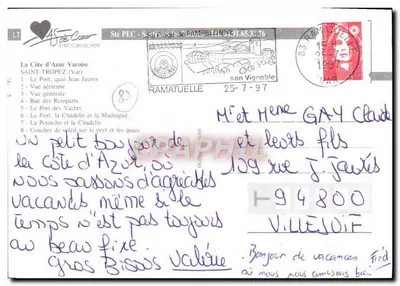 Sté PEC
LT
La Côte d'Azur Varoise
SAINT-TROPEZ (Var)
1 - Le Port, quai Jean Jaurès
2 - Vue aérienne
3 - Vue générale
4 - Rue des Remparts
5 - Le Port des Yachts
6 - Le Port, la Citadelle et la Madrague
7 - La Ponche et la Citadelle
8 - Coucher de soleil sur le port et les quais
83
PAMPELONNE
son Vignoble
RAMATUELLE 25-7-97
Un petit bonjour de
la côte d'Azur où
nous passons d'agréables
vacances même si le
temps n'est pas toujours
au beau fixe.
Gros Bisous Valérie
Mr et Mme GAY Claude
et leurs fils
109 rue J. Jaurès
94800
VILLEJUIF
Bonjour de vacances Fred
où nous nous amusons bien